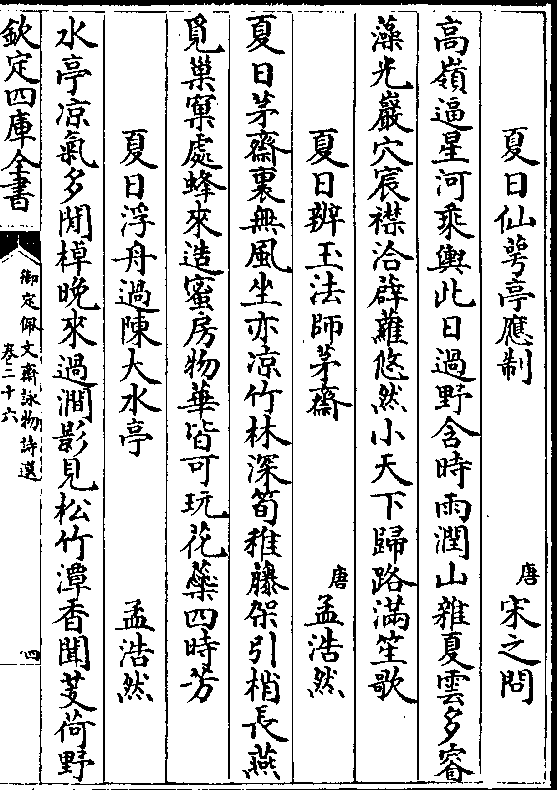 夏日仙萼亭應制　唐宋之問
高嶺逼星河乘輿此日過野含時雨潤山雜夏雲多睿
藻光巖穴宸襟洽薜蘿悠然小天下歸路滿笙歌
夏日辨玉法師茅齋　唐孟浩然
夏日茅齋裏無風坐亦凉竹林深筍穉藤架引梢長燕
覓巢窠處蜂來造蜜房物華皆可玩花蘂四時芳
夏日浮舟過陳大水亭　孟浩然
水亭凉氣多閒棹晚來過澗影見松竹潭香聞芰荷野
欽定四庫全書
御定佩文齋詠物詩選
卷二十六
四